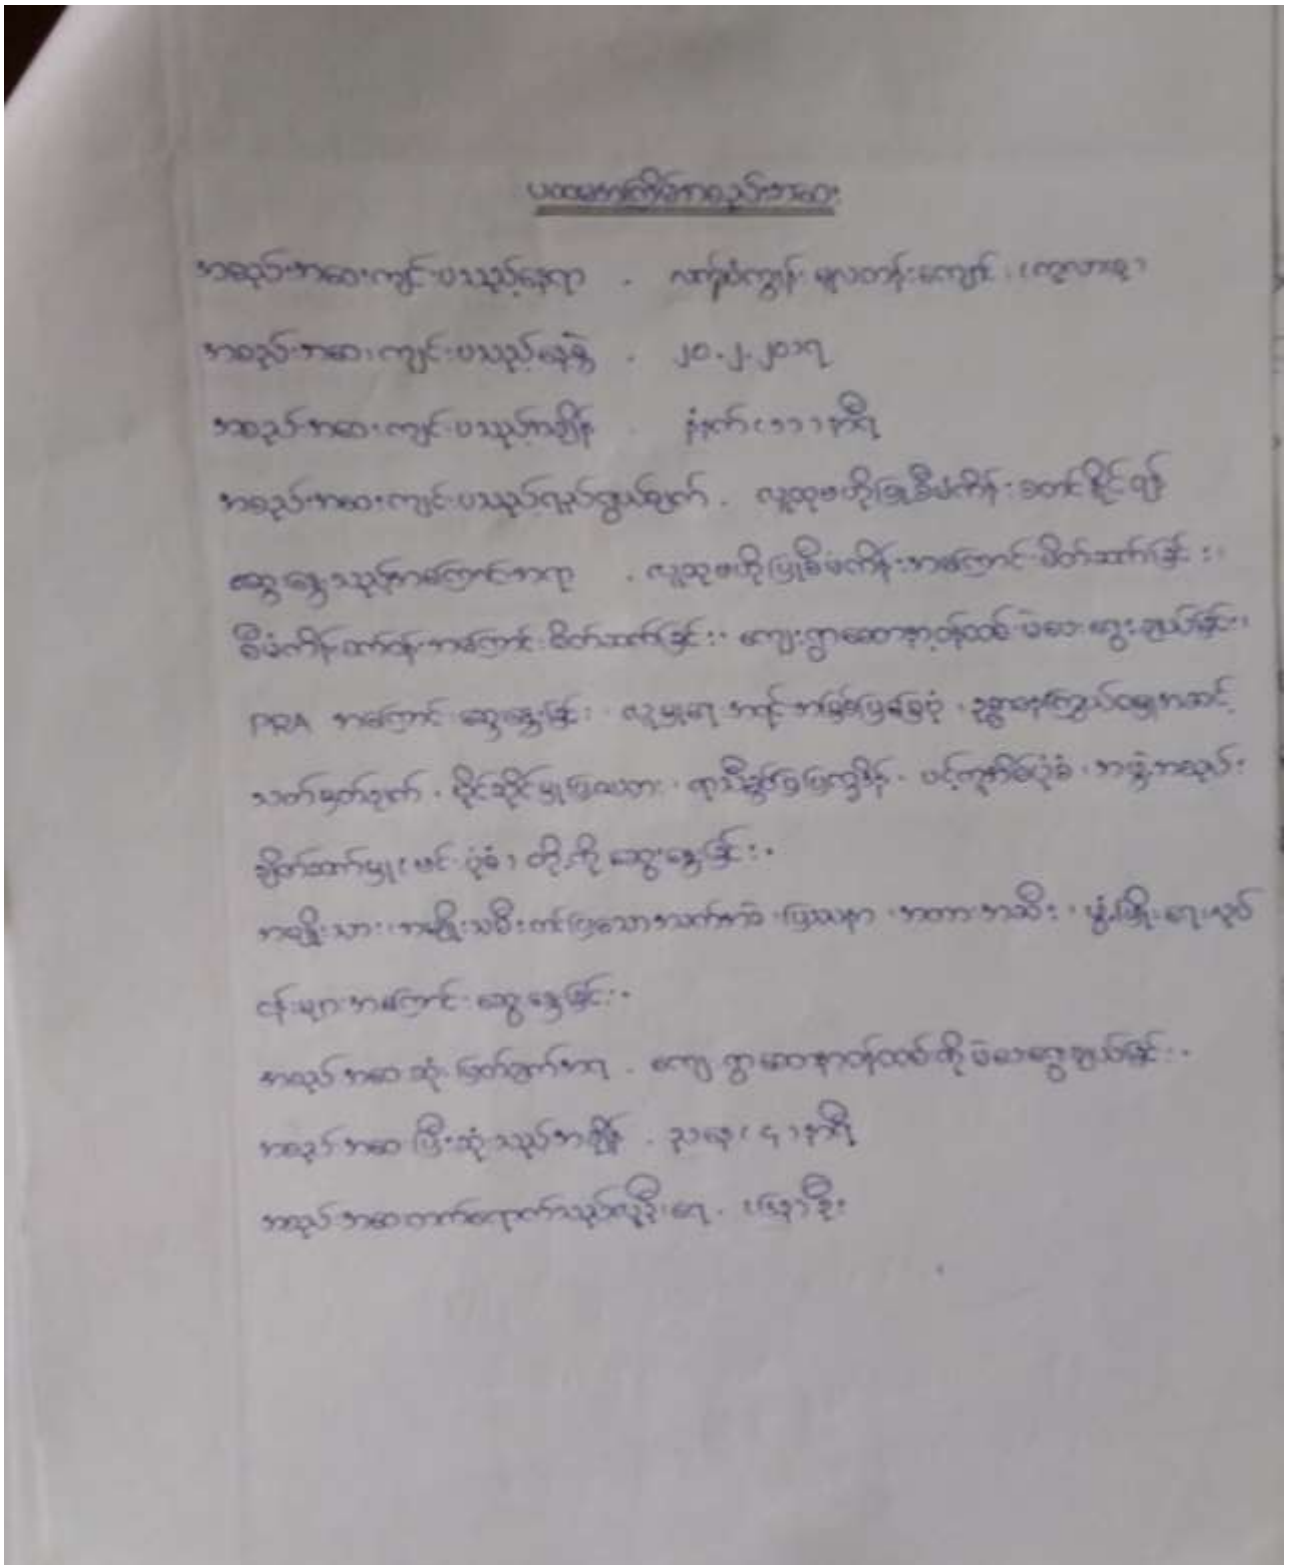 ပထမအကြိမ်အစည်းအဝေး
အစည်းအဝေးကျင်းပသည့်နေရာ - မူလတန်းကျောင်း
အစည်းအဝေးကျင်းပသည့်နေ့ရက် - ၂၀.၂.၂၀၁၇
အစည်းအဝေးကျင်းပသည့်အချိန် - နံနက် (၁၁) နာရီ
အစည်းအဝေးကျင်းပသည့်ရည်ရွယ်ချက် - လူထုဗဟိုပြုစီမံကိန်း စတင်နိုင်ရန်
ဆွေးနွေးသည့်အကြောင်းအရာ - လူထုဗဟိုပြုစီမံကိန်းအကြောင်း မိတ်ဆက်ခြင်း၊
စီမံကိန်းဝက်ဝန်းအကြောင်း မိတ်ဆက်ခြင်း၊ ကျေးရွာစေတနာ့ဝန်ထမ်း မဲပေးရွေးချယ်ခြင်း၊
PRA အကြောင်း ဆွေးနွေးခြင်း၊ လူမှုရေး အရင်းအမြစ်ပြမြေပုံ၊ ဥစ္စာဓနကြွယ်ဝမှုအဆင့်
သတ်မှတ်ချက်၊ ရာသီခွင်ပြပြက္ခဒိန်၊ ပင့်ကူအိမ်ပုံစံ၊ အဖွဲ့အစည်း
ချိတ်ဆက်မှု ( ပုံစံ ) တို့ကို ဆွေးနွေးခြင်း။
အမျိုးသား၊ အမျိုးသမီး ပြဿနာ၊ အတားအဆီး၊ ဖွံ့ဖြိုးရေးလုပ်
ငန်းများအကြောင်း ဆွေးနွေးခြင်း။
အစည်းအဝေးဆုံးဖြတ်ချက်အရ - ကျေးရွာစေတနာ့ဝန်ထမ်းကို မဲပေးရွေးချယ်ခြင်း။
အစည်းအဝေးပြီးဆုံးသည့်အချိန် - ညနေ (၄) နာရီ
အစည်းအဝေးတက်ရောက်သည့်လူဦးရေ - ဦး